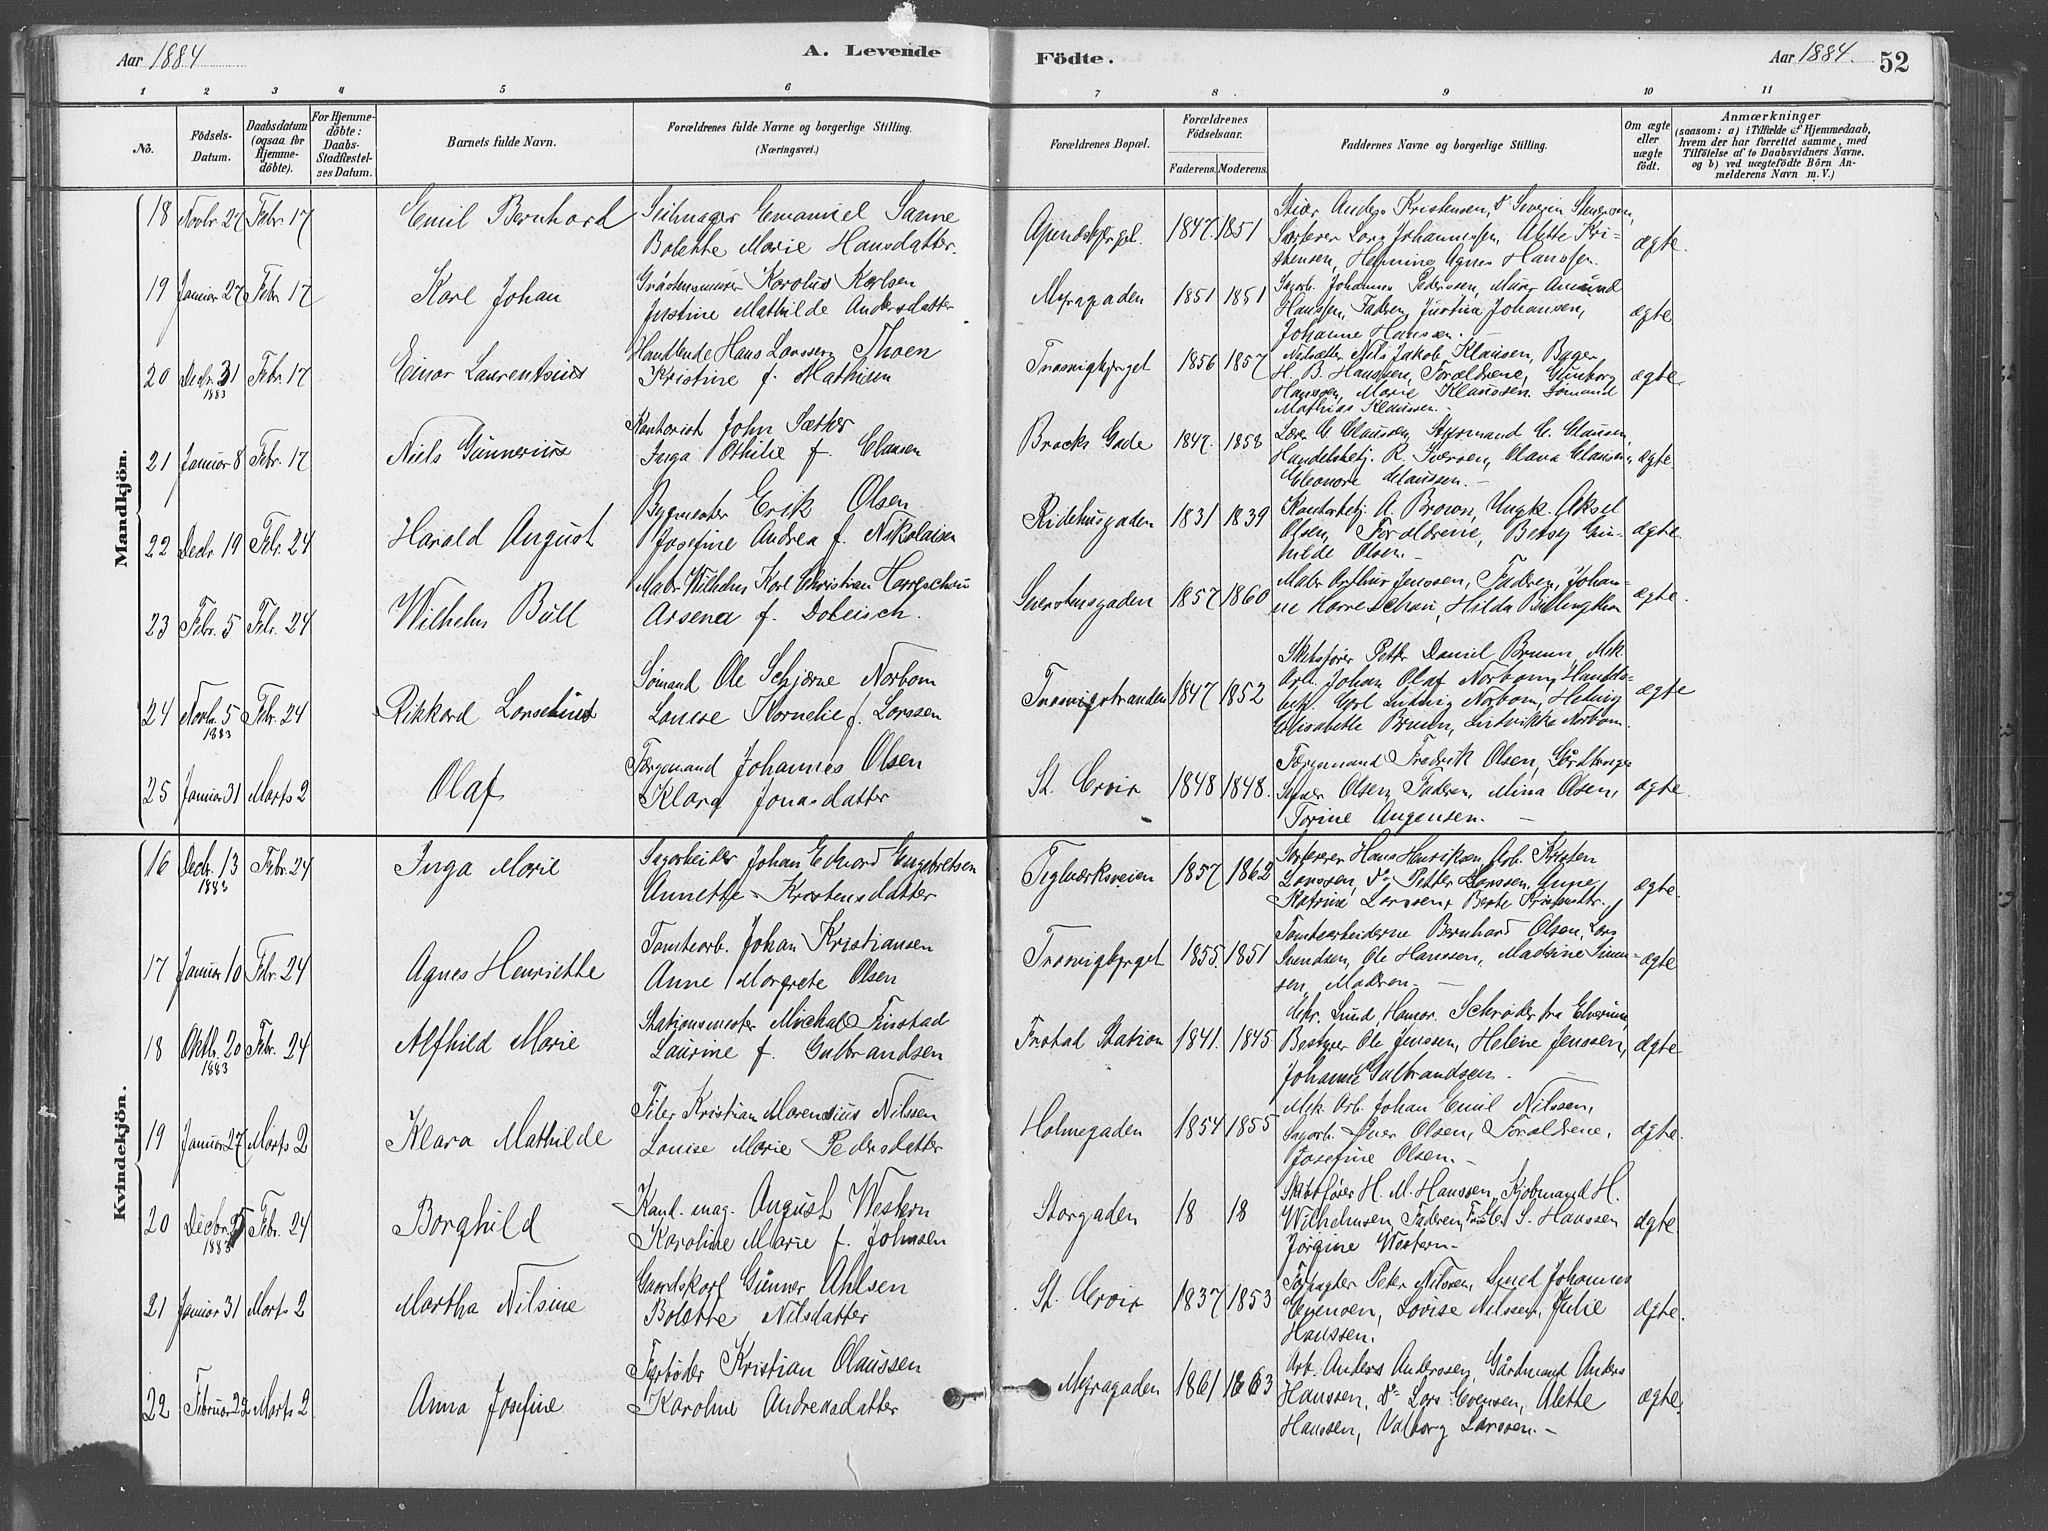 Aar 1884
A. Levende
Födte.
Aar 1884.
52
1 2 3 4 5 6 7 8 9 10 11
No.
Födsels-Datum.
Daabsdatum (ogsaa for Hjemme-döbte).
For Hjemme-döbte: Daabs-Stadfæstel-ses Datum.
Barnets fulde Navn.
Forældrenes fulde Navne og borgerlige Stilling.
(Næringsvei.)
Forældrenes Bopæl.
Forældrenes Födselsaar.
Faderens. Moderens.
Faddernes Navne og borgerlige Stilling.
Om ægte eller uægte födt.
Anmærkninger
(saasom: a) i Tilfælde af Hjemmedaab,
hvem der har forrettet samme, med
Tilföielse af to Daabsvidners Navne,
og b) ved uægtefödte Börn An-
melderens Navn m. V.)
Mandkjön.
18 Novbr. 27 Febr. 17 Emil Bernhard Emanuel Sanne
Bolette Marie Hansdatter.
1847. 1851 Anders Kristensen, Severin
Johannessen, Alette Kri-
stensen, Hermine Agnes Hanssen.
ægte.
19 Januar 27 Febr 17 Karl Johan Karolus Karlsen
Justine Mathilde Andersdatter
Myragaden 1851 1851 Sagarb. Johannes Pederssen, Murer Amund
Hanssen, Faderen, Justina Johansen,
Johanne Hanssen.
ægte
20 Decbr. 31 1883 Febr. 17 Einar Laurentius Handlende Hans Larssen Thoen
Kristine f. Mathisen
Trosvigbjerget 1856 1857 Nils Jakob Klausen, Bager
H. B. Hanssen, Forældrene, Gunborg
Hanssen, Marie Klaussen. Sömand
Mathias Klaussen.
ægte.
21 Januar 8 Febr. 17 Niels Gunnerius Kontorist John Sæther
Inga Othilie f. Clausen
Brocks Gade 1847. 1858 Lærer G. Clausen, Styrmand C. Clausen,
Handelsbetj. R. Iversen, Olava Clausen,
Eleonore Claussen.
ægte.
22 Decbr. 19 Febr. 24 Harald August Bygmester Erik Olsen
Josefine Andrea f. Nikolaisen
Ridehusgaden 1831 1839 Kontorbetj. A. Brown, Ungk. Aksel
Olsen, Forældrene, Betsy Gun-
hilde Olsen.
ægte.
23 Febr. 5 Febr. 24 Wilhelm Bull Maler Wilhelm Karl Christian Harreschou
Arsena f. Doleisch.
1857 1860 Maler Arthur Jenssen, Faderen, Johan-
ne Harreschou, Hilda
ægte.
24 Novbr. 5 1883 Febr. 24 Rikkard Sömand Ole Schjerne Norbom
Louise Kornelie f. Larssen
Trosvigstranden 1847 1852 Skibsförer Petter Daniel Bruun, Mek.
Arb. Johan Olaf Norbom, Handels-
betj. Carl Ludvig Norbom, Helvig
Elisabeth Bruun, Ludvikke Norbom.
ægte
25 Januar 31 Marts 2 Olaf Færgemand Johannes Olsen
Klara Jonasdatter
St. Croix 1848 1848. Færgemand Fredrik Olsen,
Olsen, Faderen, Mina Olsen,
Torine Augensen.
ægte.
Kvindekjön.
16 Decbr. 13 1883 Febr. 24 Inga Marie Sagarbeider Johan Edvard Engebretsen
Annette Kristensdatter
Teglværksveien 1857 1862 Hans Henriksen, Arb. Kristen
Larssen, Do Petter Larssen, Anne
Katrine Larssen, Berte
ægte.
17 Januar 10 Febr. 24 Agnes Henriette Tomtearb. Johan Kristiansen
Anne Margrete Olsen
Trosvigbjerget 1855. 1851 Tomtearbeiderne Bernhard Olsen, Lars
Svendsen, Ole Hanssen, Madrine Simen-
sen, Moderen.
ægte
18 Oktbr. 20 1883 Febr. 24 Alfhild Marie Stationsmester Michal Finstad
Laurine f. Gulbrandsen
Station 1841. 1845 Lund, Hamar. Schrøder fra Elverum,
Bestyrer Ole Jenssen, Helene Jenssen,
Johanne Gulbrandsen.
ægte
19 Januar 27 Marts 2 Klara Mathilde Filer Kristian Marensius Nilssen
Louise Marie Pedersdatter
Holmegaden 1854 1855 Mek. Arb. Johan Emil Nilssen,
Sagarb. Iver Olsen, Forældrene,
Josefine Olsen.
ægte.
20 Decbr. 1883 Febr. 24 Borghild Kand. mag. August Western
Karoline Marie f. Johnsen
Storgaden 18 18 Skibsförer H. M. Hanssen, Kjöbmand H.
Wilhelmsen, Faderen, S. Hanssen
Jörgine Western.
ægte
21 Januar 31 Marts 2 Martha Nilsine Gaardskarl Gunner Ahlsen
Bolette Nilsdatter
St. Croix 1837 1853 Forpagter Peter Nilssen, Smed Johannes
Evensen, Lovise Nilssen, Julie
Hanssen.
ægte.
22 Februar 22 Marts 2 Anna Josefine Kristian Olaussen
Karoline Andreasdatter
Myragaden 1861 1863 Arb. Anders Anderssen, Gårdmand Anders
Hanssen, Do Lars Evensen, Alette
Hanssen, Valborg Larssen.
ægte.